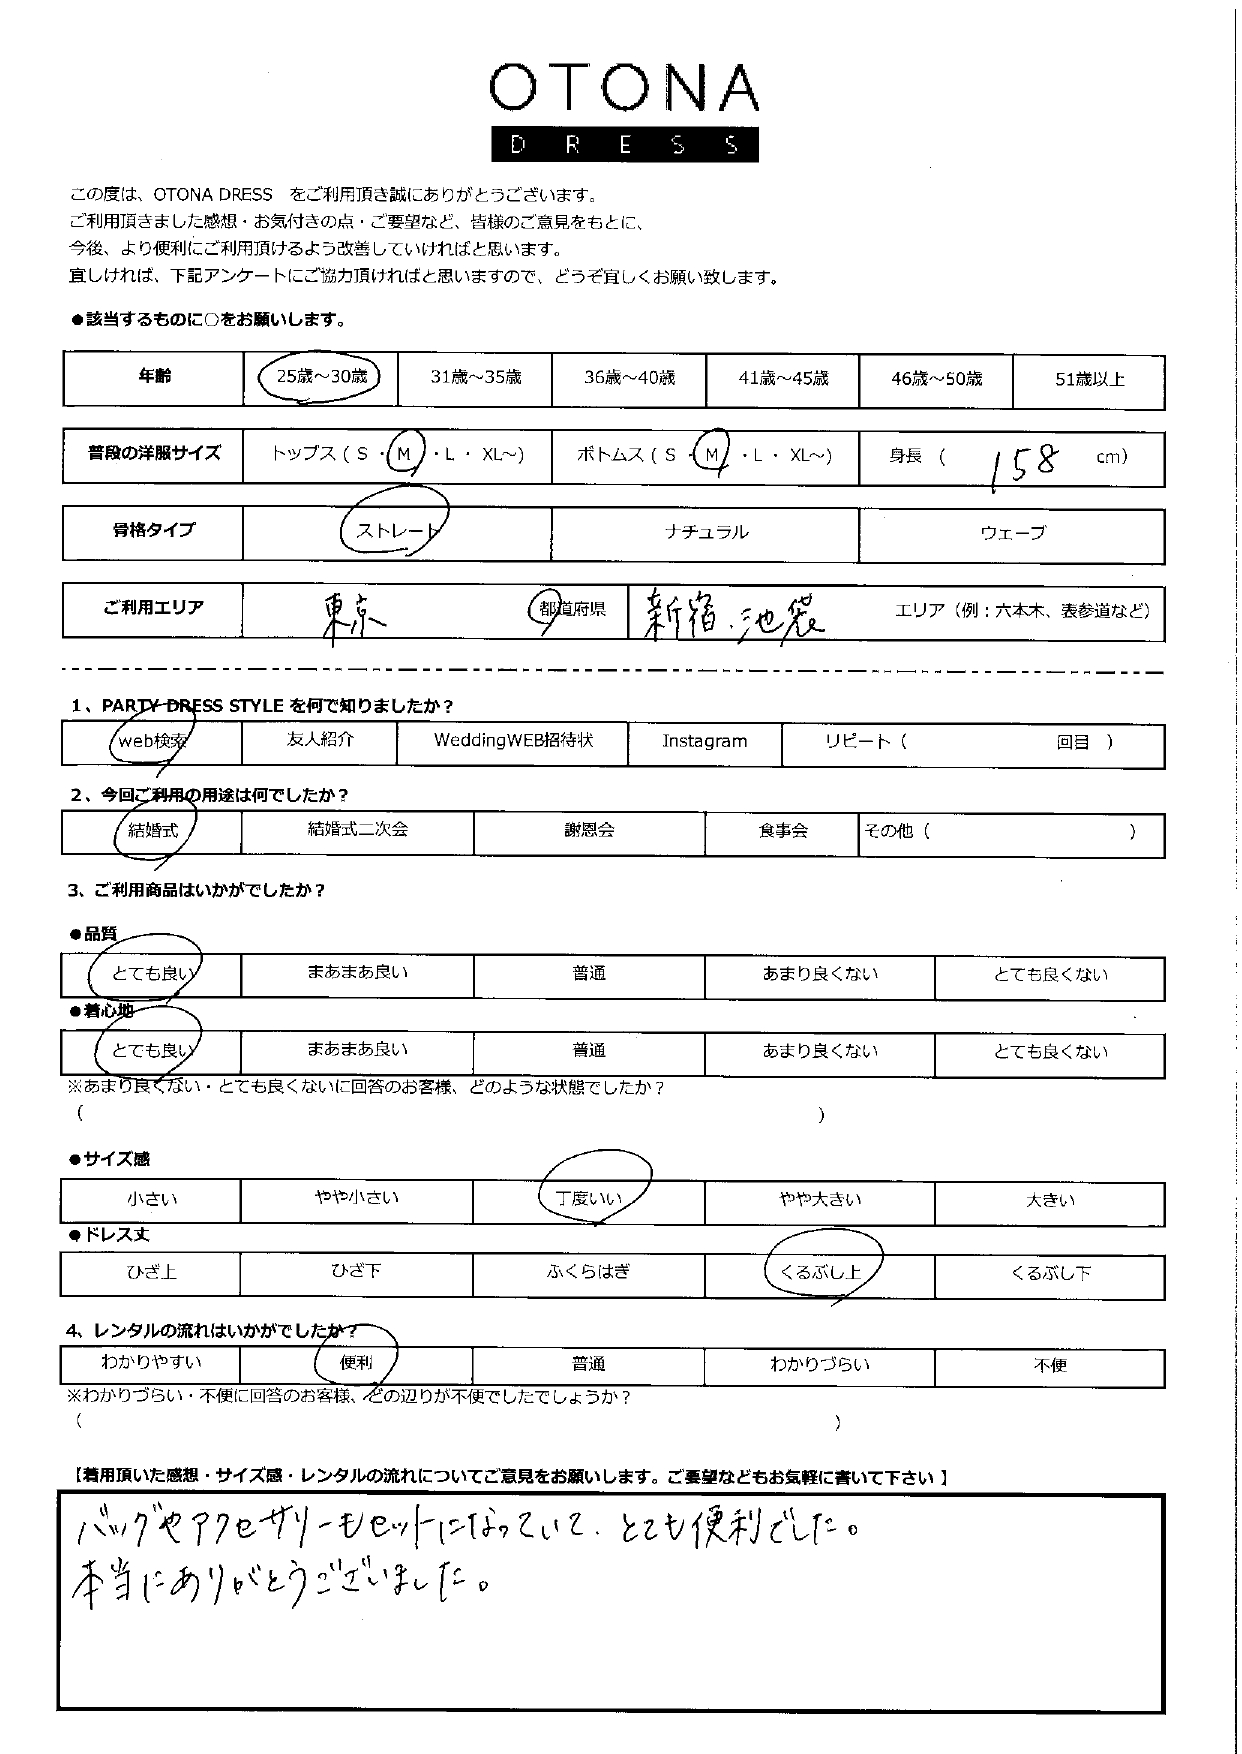 OTONA
DRESS
この度は、OTONA DRESS をご利用頂き誠にありがとうございます。
ご利用頂きました感想・お気付きの点・ご要望など、皆様のご意見をもとに、
今後、より便利にご利用頂けるよう改善していければと思います。
宜しければ、下記アンケートにご協力頂ければと思いますので、どうぞ宜しくお願い致します。
●該当するものに○をお願いします。
年齢 25歳～30歳 31歳～35歳 36歳～40歳 41歳～45歳 46歳～50歳 51歳以上
普段の洋服サイズ トップス（ S ・ M ・ L ・ XL～） ボトムス（ S ・ M ・ L ・ XL～） 身長（ 158 cm）
骨格タイプ ストレート ナチュラル ウェーブ
ご利用エリア 東京 都道府県 新宿.池袋 エリア（例：六本木、表参道など）
1、PARTY DRESS STYLE を何で知りましたか？
web検索 友人紹介 WeddingWEB招待状 Instagram リピート（ 回目 ）
2、今回ご利用の用途は何でしたか？
結婚式 結婚式二次会 謝恩会 食事会 その他（ ）
3、ご利用商品はいかがでしたか？
●品質
とても良い まあまあ良い 普通 あまり良くない とても良くない
●着心地
とても良い まあまあ良い 普通 あまり良くない とても良くない
※あまり良くない・とても良くないに回答のお客様、どのような状態でしたか？
（ ）
●サイズ感
小さい やや小さい 丁度いい やや大きい 大きい
●ドレス丈
ひざ上 ひざ下 ふくらはぎ くるぶし上 くるぶし下
4、レンタルの流れはいかがでしたか？
わかりやすい 便利 普通 わかりづらい 不便
※わかりづらい・不便に回答のお客様、どの辺りが不便でしたでしょうか？
（ ）
【着用頂いた感想・サイズ感・レンタルの流れについてご意見をお願いします。ご要望などもお気軽に書いて下さい 】
バッグやアクセサリーもセットになっていて、とても便利でした。
本当にありがとうございました。